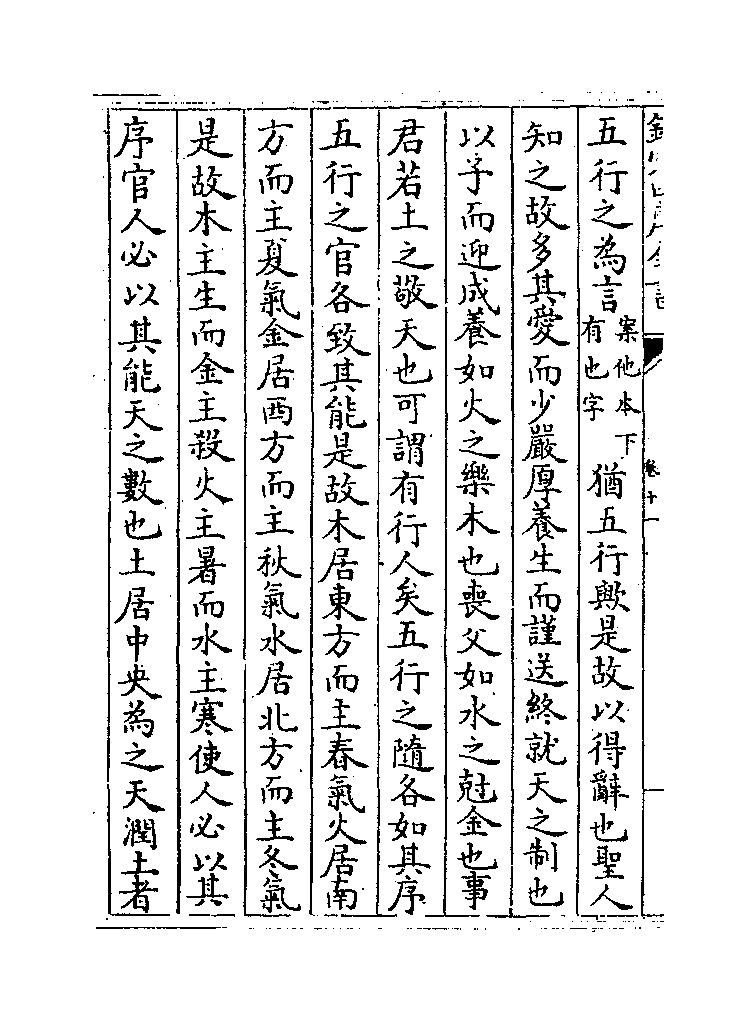 五行之為言案他本下有也字猶五行歟是故以得辭也聖人
知之故多其愛而少嚴厚養生而謹送終就天之制也
以子而迎成養如火之樂木也喪父如水之尅金也事
君若土之敬天也可謂有行人矣五行之隨各如其序
五行之官各致其能是故木居東方而主春氣火居南
方而主夏氣金居西方而主秋氣水居北方而主冬氣
是故木主生而金主殺火主暑而水主寒使人必以其
序官人必以其能天之數也土居中央為之天潤土者
卷十一